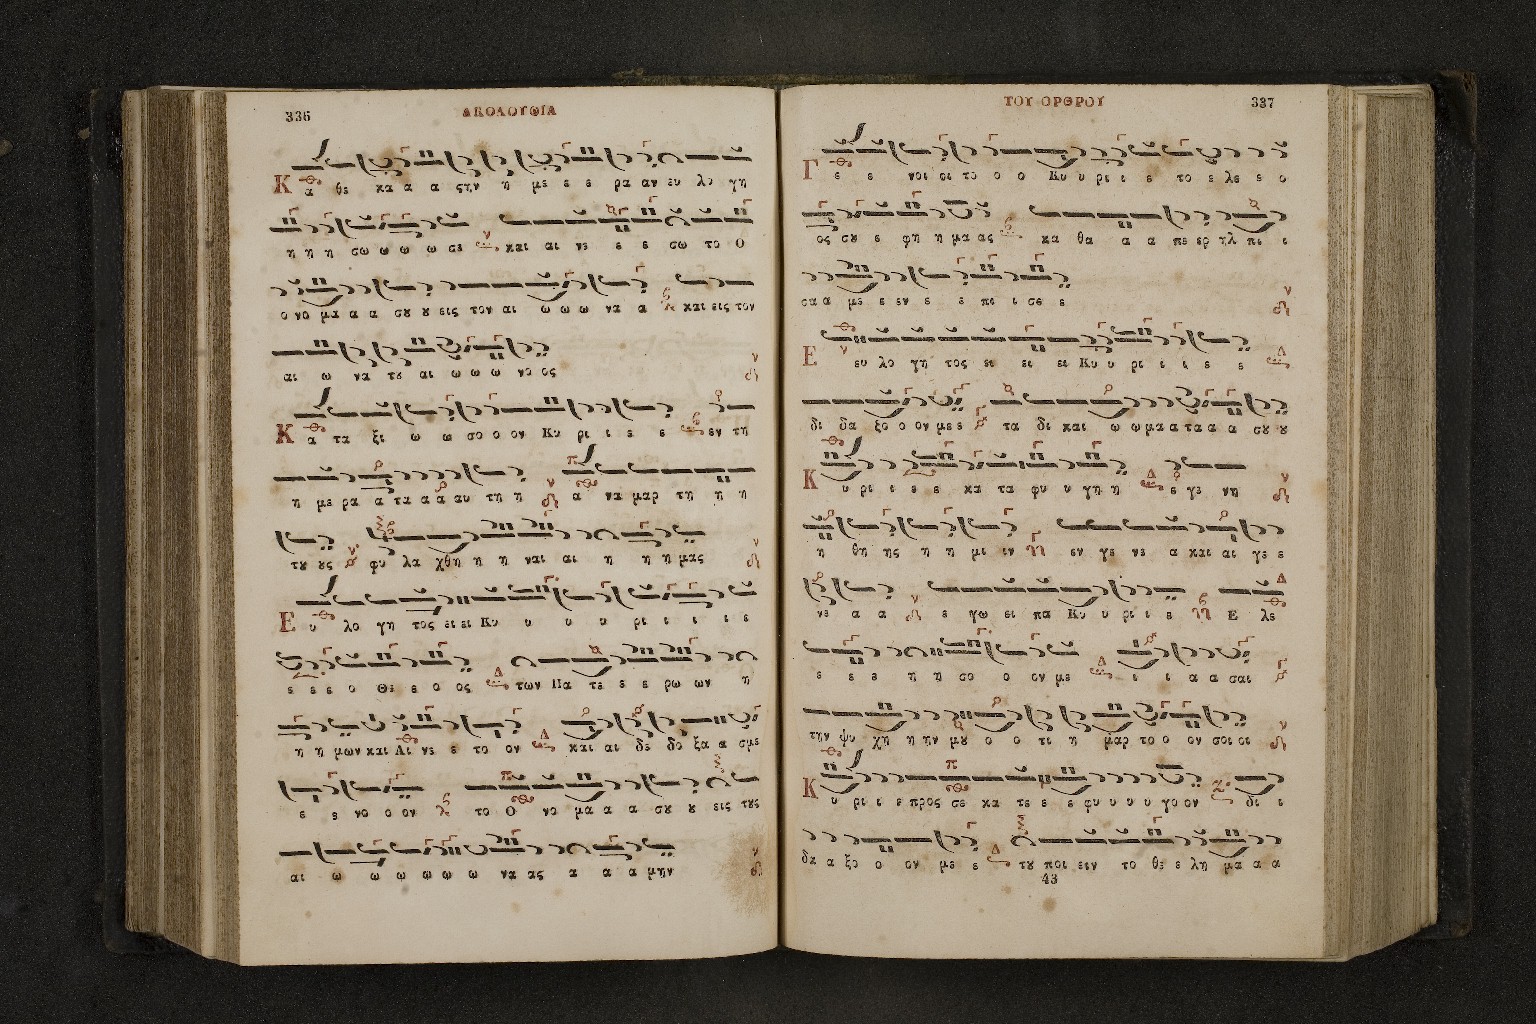 336 ΑΚΟΛΟΥΘΙΑ
Κ α θε κα α α ςην η με ε ε ρα αν ευ λο γη
η η η σω ω ω ω σε και αι νε ε ε σω το Ο
ο νο μα α α σου ου εις τον αι ω ω ω να α και εις τον
αι ω να του αι ω ω ω νο ος
Κ α τα ξι ω ω σο ο ον Κυ ρι ι ε ε εν τη
η με ρα α τα α α αυ τη η α να μαρ τη η η
του ους φυ λα χθη η η ναι αι η η η μας
Ε υ λο γη τος ει ει Κυ υ υ υ ρι ι ι ι ε
ε ε ε ο Θε ε ο ος των Πα τε ε ε ρω ων η
η η μων και Αι νε ε το ον και αι δε δο ξα α σμε
ε ε νο ο ον το Ο νο μα α α σου ου εις τους
αι ω ω ω ω ω ω να ας α α α μην
ΤΟΥ ΟΡΘΡΟΥ 337
Γ ε ε νοι οι το ο ο Κυ υ ρι ι ε το ε λε ε ο
ος σου ε φη η μα ας κα θα α α περ ηλ πι ι
σα α με ε εν ε ε πι ι σε ε
Ε ευ λο γη τος ει ει ει Κυ υ ρι ι ι ε ε
δι δα ξο ο ον με ε τα δι και ω ω μα α τα α α σου ου
Κ υ ρι ι ε ε κα τα φυ υ γη η ε γε νη
η θη ης η η μι ιν εν γε νε α και αι γε ε
νε α α ε γω ει πα Κυ υ ρι ι ε Ε λε
ε ε ε η η σο ο ον με ι ι α α σαι
την ψυ χη η ην μου ο ο τι η μαρ το ο ον σοι οι
Κ υ ρι ι ε προς σε κα τε ε ε φυ υ υ υ γο ον δι ι
δα α ξο ο ον με ε του ποι ειν το θε ε λη μα α α
43